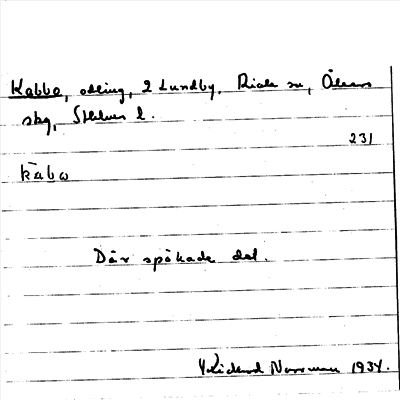 Kabbo, odling, 2 Lundby, Riala sn, Åkers
skg, Sthlms l.
231
kabω
Där spökade det.
Rickard Norrman 1934.